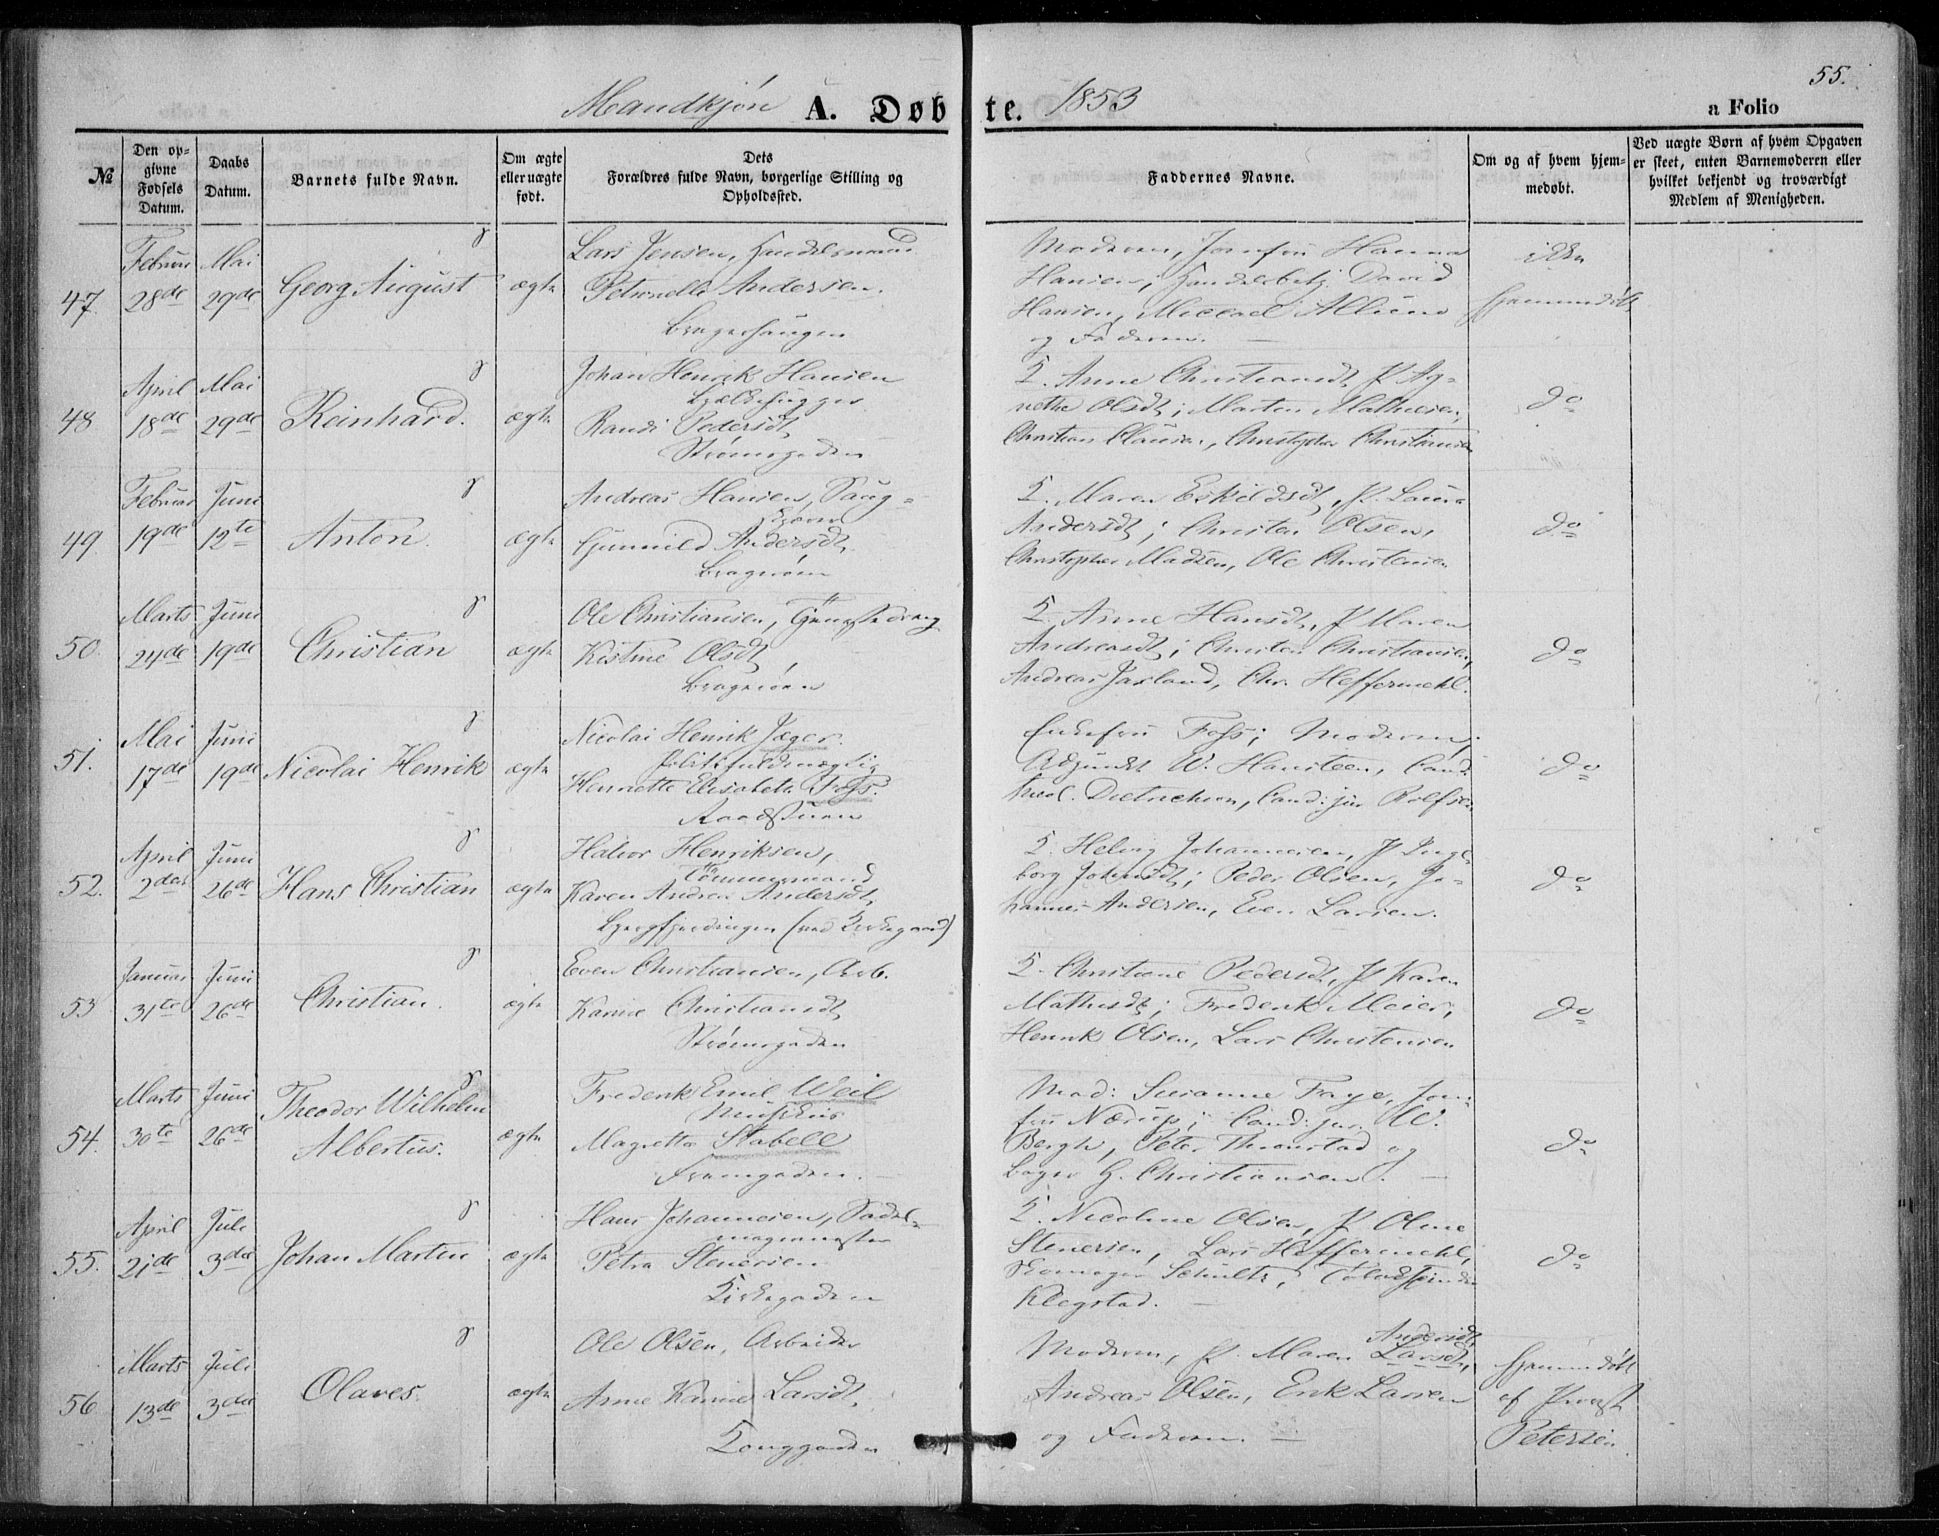 55.
Mandkjøn A. Døbte. 1853 a Folio
№ Den opgivne Fødsels Datum. Daabs Datum. Barnets fulde Navn. Om ægte eller uægte født. Dets Forældres fulde Navn, borgerlige Stilling og Opholdssted. Faddernes Navne. Om og af hvem hjemmedøbt. Ved uægte Børn af hvem Opgaven er skeet, enten Barnemoderen eller hvilket bekjendt og troværdigt Medlem af Menigheden.
47. Februar 28de Mai 29de Georg August ægte
Lars Jensen, Handelsmand
Petronelle Andersen.
Bragerhaugen
Moderen, Jomfru Hanna
Hansen; Handelsbetj. David
Hansen, Michael
og Faderen.
ikke
hjemmedøbt
48 April 18de Mai 29de Reinhard. ægte
Johan Henrik Hansen
Randi Pedersdt,
Strømsgaden
K. Anne Christiansdt, P. Ag-
nethe Olsdt; Marten Mathiesen,
Christian Clausen, Christopher Christiansen
do
49. Februar 19de Juni 12te Anton. ægte
Andreas Hansen, Saug-
skjærer
Gunnild Andersdt,
Bragerøen
K. Maren Eskildsdt, P. Laura
Andersdt; Christen Olsen,
Christopher Madsen, Ole Christensen
do
50. Marts 24de Juni 19de Christian ægte
Ole Christiansen, Tjenestedreng
Kistine Olsdt,
Bragerøen
K. Anne Hansdt, P. Maren
Andreasdt; Christen Christiansen,
Andreas Jarland, Chr. Heffermehl.
do
51. Mai 17de Juni 19de Nicolai Henrik ægte
Nicolai Henrik Jæger.
Politifuldmægtig
Henriette Elisabeth Foss.
Raadstuen
Enkefru Foss; Moderen,
Adjunct W. Hansteen, Cand:
theol. Dietrichson, Cand: jur Rolfsen
do
52. April 2den Juni 26de Hans Christian ægte
Halvor Henriksen,
Tømmermand
Karen Andrea Andersdt,
Bjergfjerdingen (ved Kirkegaard)
K. Helvig Johannesen, P. Inge-
borg Johnsdt; Peder Olsen, Jo-
hannes Andersen, Even Larsen.
do
53 Januar 31te Juni 26de Christian. ægte
Even Christiansen, Arb.
Karine Christiansdt,
Strømsgaden
K. Christiane Pedersdt, P. Karen
Mathisdt; Frederik Meier,
Henrik Olsen, Lars Christensen
do
54. Marts 30te Juni 26de Theodor Wilhelm
Albertus. ægte
Frederik Emil Weil
Musikus
Magrette Stabell
Mad: Susanne Faye, Jom-
fru Nærup; Cand: jur. W.
Bergh, Peter Thronstad og
Bager G. Christiansen.
do
55. April 21de Juli 3die Johan Martin ægte
Hans Johannesen, Sadel-
magermester
Petra Stenersen
Kirkegaden
K. Nicoline Olsen, P. Oline
Stenersen, Lars Heffermehl,
Skomager Schultz,
Klegstad.
do
56 Marts 13de Juli 3die Olaves. ægte
Ole Olsen, Arbeider
Anne Karine Larsdt,
Langgaden
Andersdt,
Moderen, P. Maren Larsdt,
Andreas Olsen, Erik Larsen
og Faderen.
hjemmedøbt
af Provst
Petersen